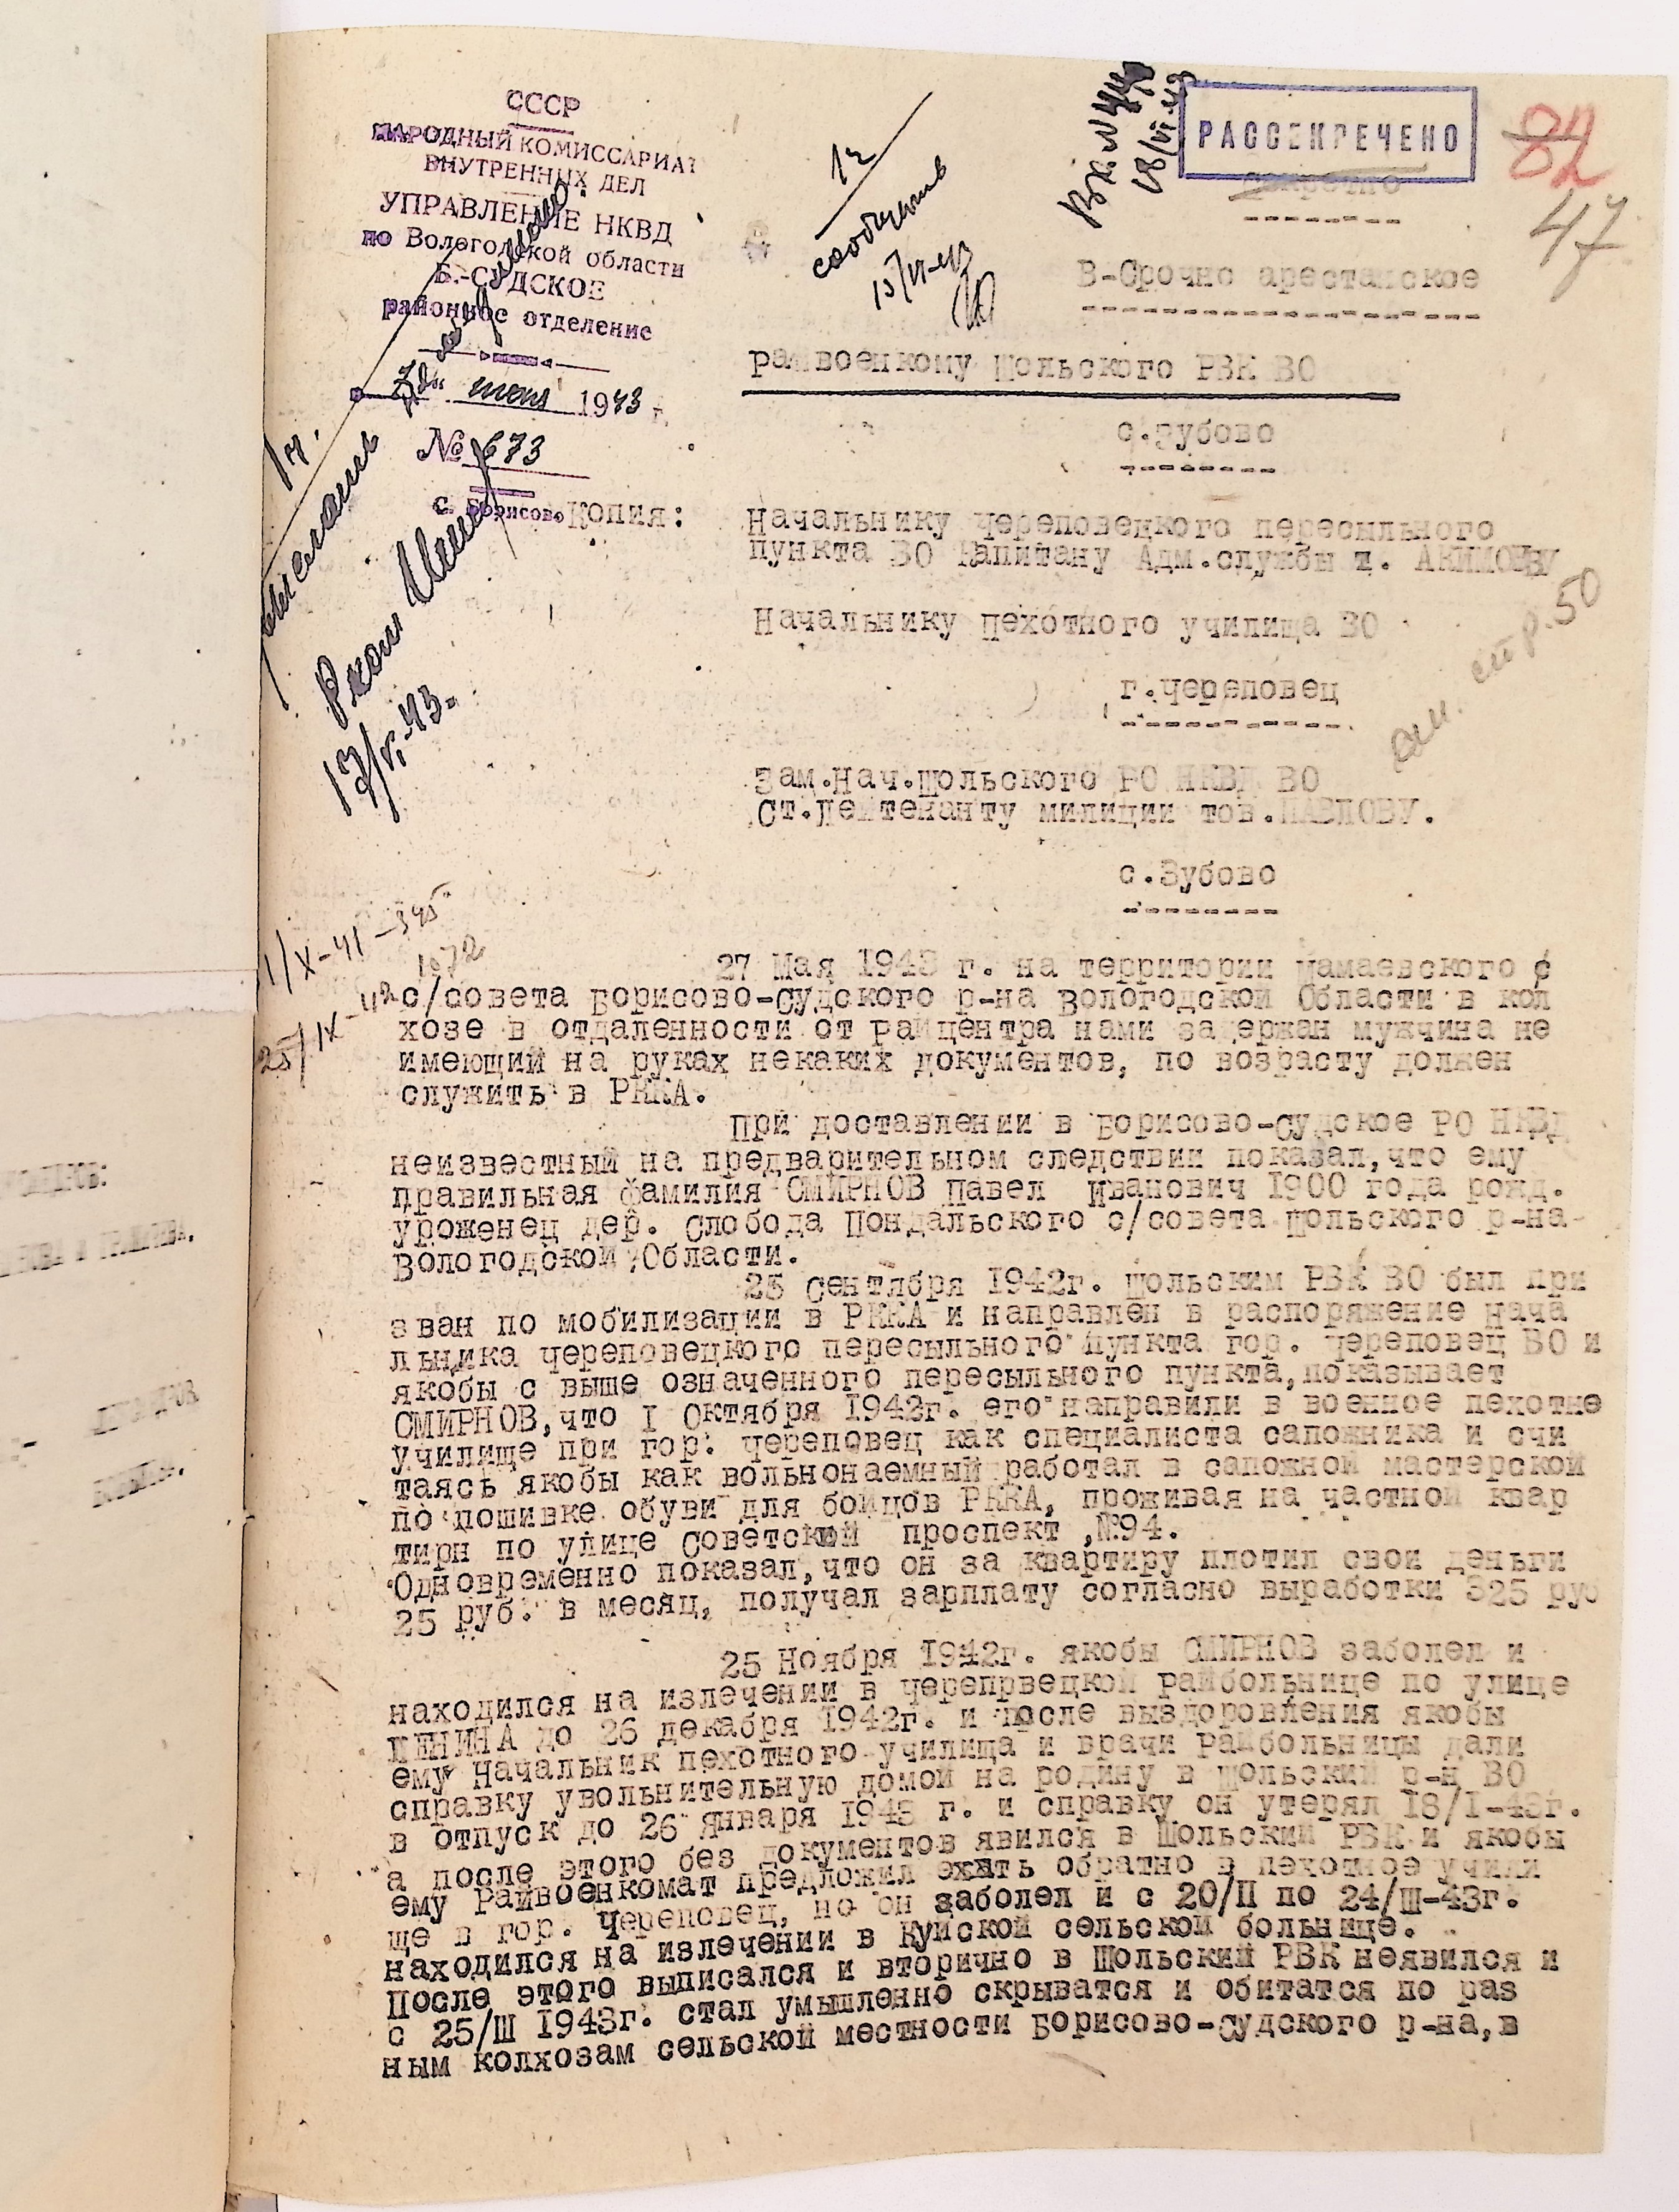 СССР
НАРОДНЫЙ КОМИССАРИАТ
ВНУТРЕННИХ ДЕЛ
УПРАВЛЕНИЕ НКВД
по Вологодской области
Б.-СУДСКОЕ
районное отделение
июня 1943 г.
№ 673
с. Борисово
Вх. №
18/VI-43
РАССЕКРЕЧЕНО
Секретно
82
47
1ч
сообщить
15/VI-43
В-Срочно арестанское
Райвоенкому Шольского РВК ВО
с.Зубово
Копия:
Начальнику Череповецкого пересыльного
пункта ВО Капитану Адм.службы т. АКИМОВУ
Начальнику Пехотного училища ВО
г.Череповец
см. стр. 50
Зам.Нач.Шольского РО НКВД ВО
Ст.Лейтенанту милиции тов.ПАВЛОВУ.
с.Зубово
1/X-41-345
1072
25/IX-42
27 Мая 1943 г. на территории Мамаевского с
с/совета Борисово-Судского р-на Вологодской Области в кол
хозе в отдаленности от райцентра нами задержан мужчина не
имеющий на руках некаких документов, по возрасту должен
служить в РККА.
При доставлении в Борисово-Судское РО НКВД
неизвестный на предварительном следствии показал,что ему
правильная фамилия СМИРНОВ Павел Иванович 1900 года рожд.
уроженец дер. Слобода Пондальского с/совета Шольского р-на
Вологодской Области.
25 Сентября 1942г. Шольским РВК ВО был при
зван по мобилизации в РККА и направлен в распоряжение Нача
льника Череповецкого пересыльного пункта гор. Череповец ВО и
якобы с выше означенного пересыльного пункта,показывает
СМИРНОВ,что I Октября 1942г. его направили в военное пехотне
училище при гор. Череповец как специалиста сапожника и счи
таясь якобы как вольнонаемный работал в сапожной мастерской
по пошивке обуви для бойцов РККА, проживая на частной квар
тирн по улице Советский проспект ,№94.
Одновременно показал,что он за квартиру плотил свои деньги
25 руб. в месяц, получал зарплату согласно выработки 325 руб
25 Ноября 1942г. якобы СМИРНОВ заболел и
находился на излечении в Черепрвецкой райбольнице по улице
ЛЕНИНА до 26 декабря 1942г. и после выздоровления якобы
ему Начальник пехотного училища и врачи Райбольницы дали
справку увольнительную домой на родину в Шольский р-н ВО
в отпуск до 26 Января 1943 г. и справку он утерял 18/I-43г.
а после этого без документов явился в Шольский РВК и якобы
ему Райвоенкомат предложил ехать обратно в пехотное учили
ще в гор. Череповец, но он заболел и с 20/II по 24/III-43г.
находился на излечении в Куйской сельской больнице.
После этого выписался и вторично в Шольский РВК неявился и
с 25/III 1943г. стал умышленно скрыватся и обитатся по раз
ным колхозам сельской местности Борисово-Судского р-на,в